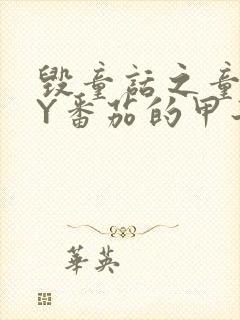 毁童话之童
Y番茄的甲
華英